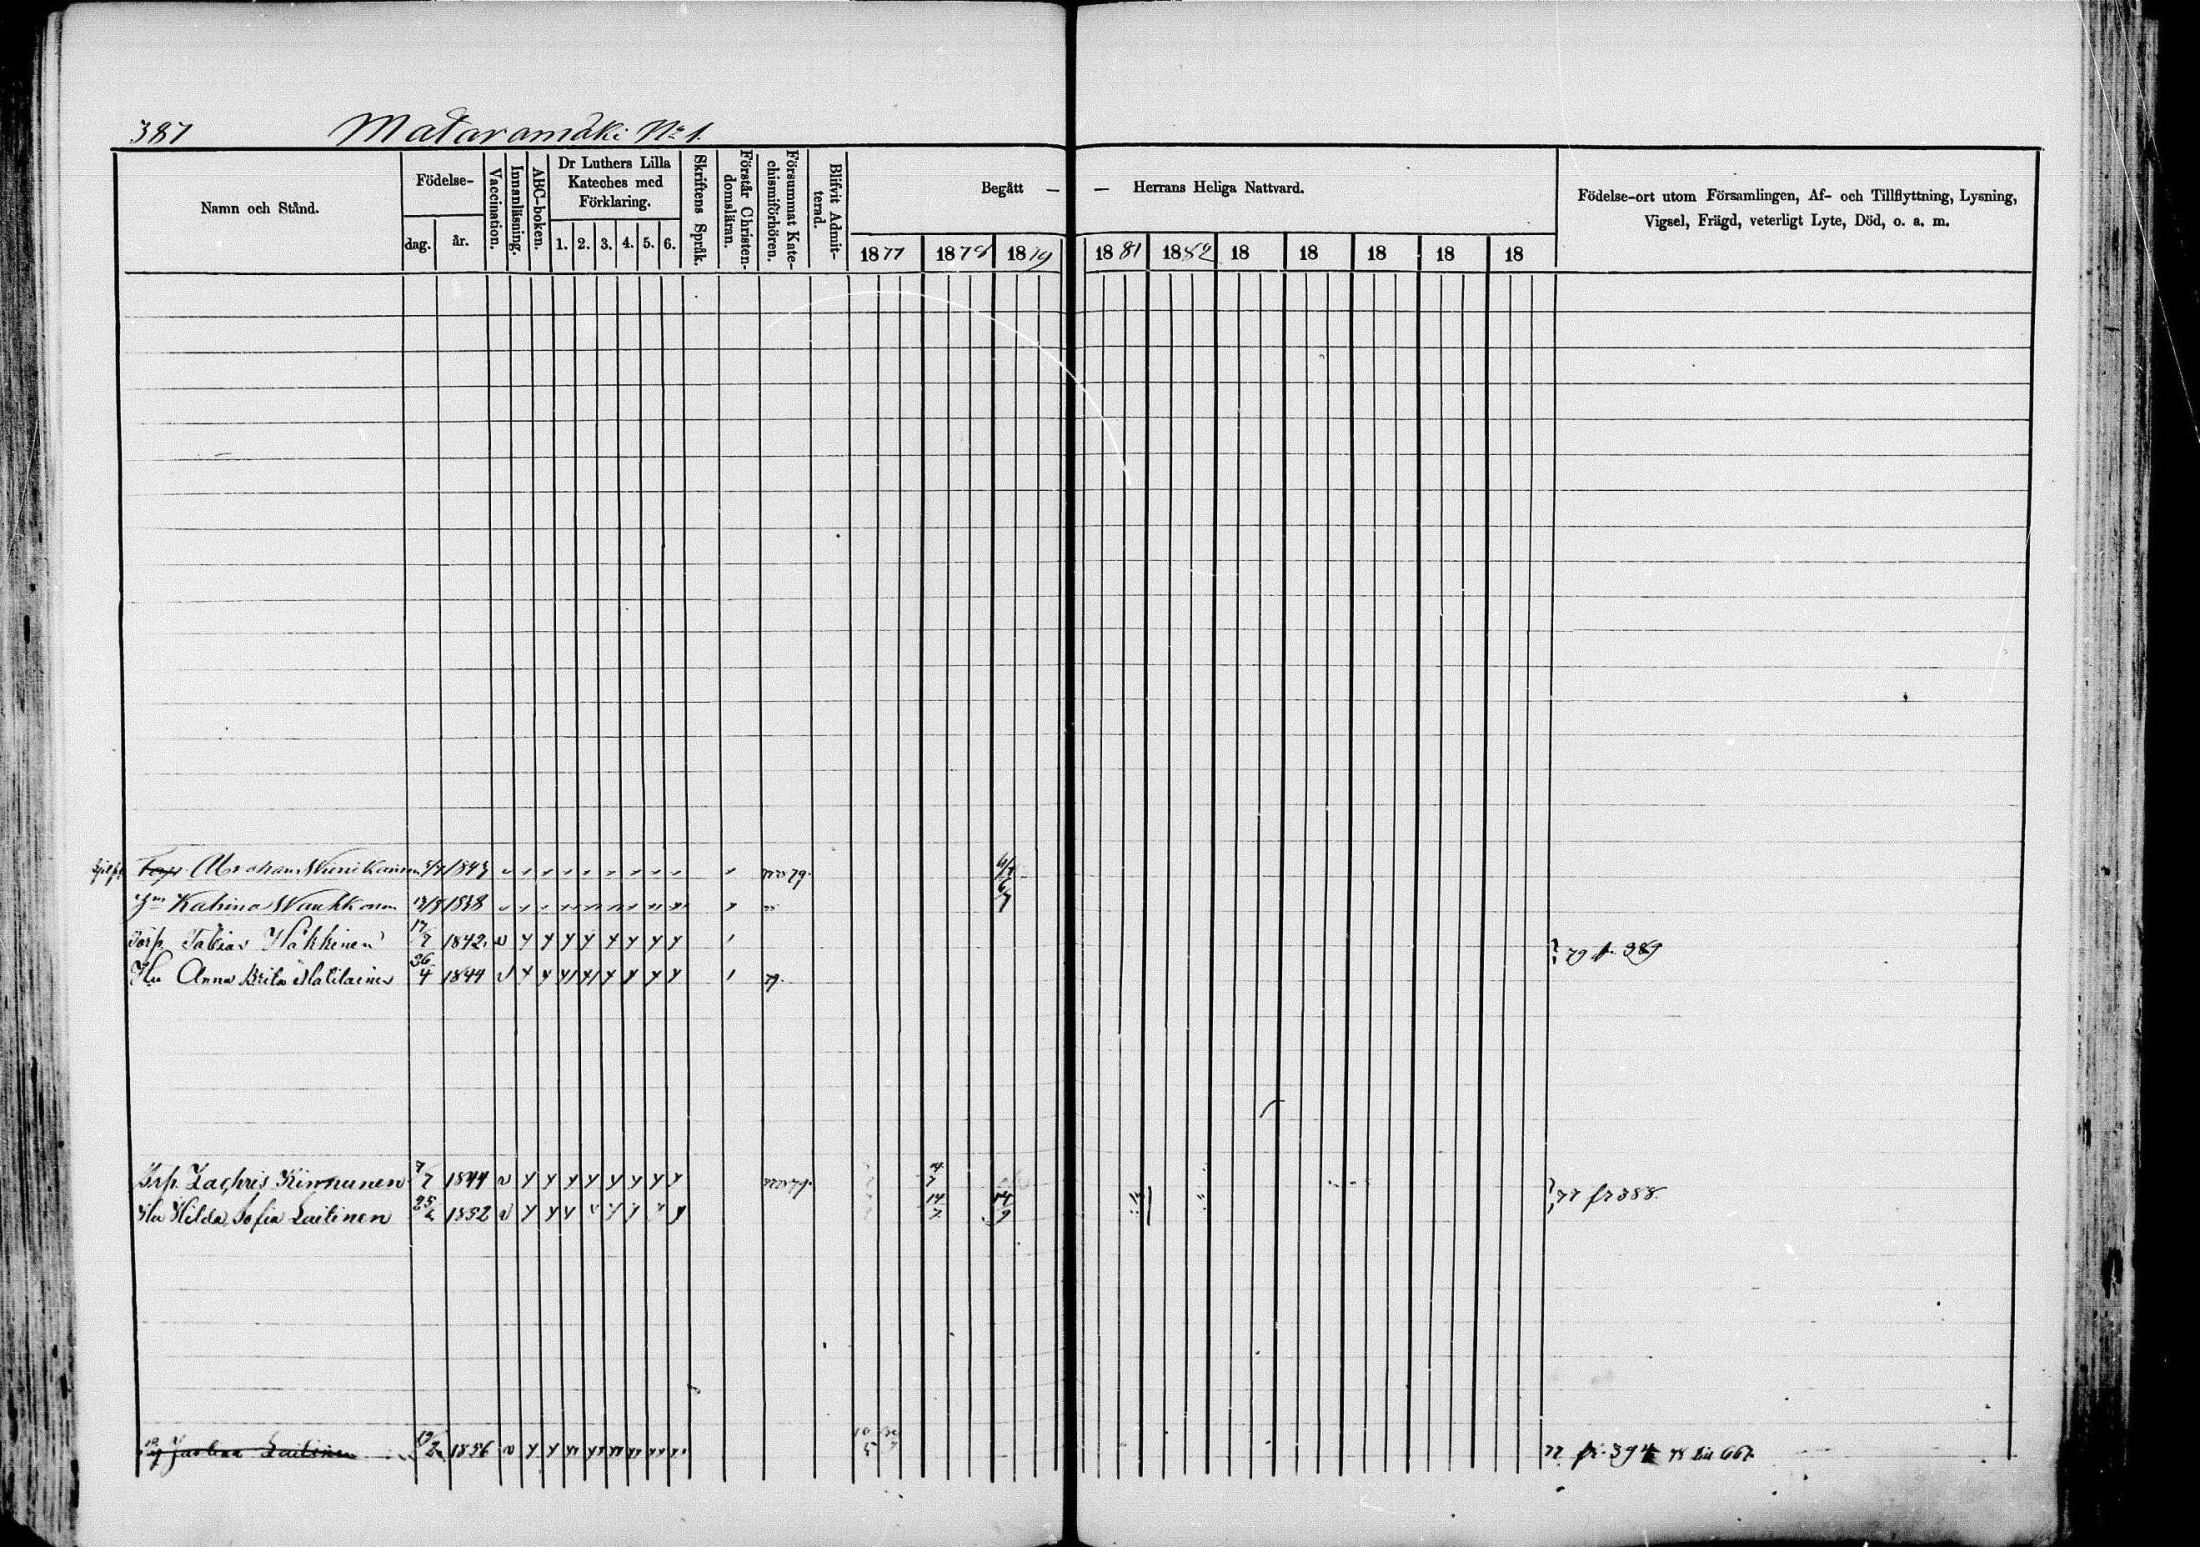 387 Mataramäki No 1.
Namn och Stånd.
Födelse-
dag. år.
Vaccination.
Innanläsning.
ABC-boken.
Dr Luthers Lilla
Kateches med
Förklaring.
1. 2. 3. 4. 5. 6.
Skriftens Språk.
Förstår Christen-
domsläran.
Försummat Kate-
chismiförhören.
Blifvit Admit-
terad.
Begått — — Herrans Heliga Nattvard.
1877 1878 1879 1881 1882 18 18 18 18 18
Födelse-ort utom Församlingen, Af- och Tillflyttning, Lysning,
Vigsel, Frägd, veterligt Lyte, Död, o. a. m.
Abraham 1843
Katrina 1838
Torp. Tobias Häkkinen 17/7 1842 79 fr 389
Hu Anna Brita Matilainen 26/4 1844 79.
Torp. Zachris Kinnunen 7/7 1844 14/7
Hu Hilda Sofia Laitinen 25/2 1852 14/7 14/9 77 fr 388
Laitinen 19/2 1856 77 fr. 394 78 till 667.